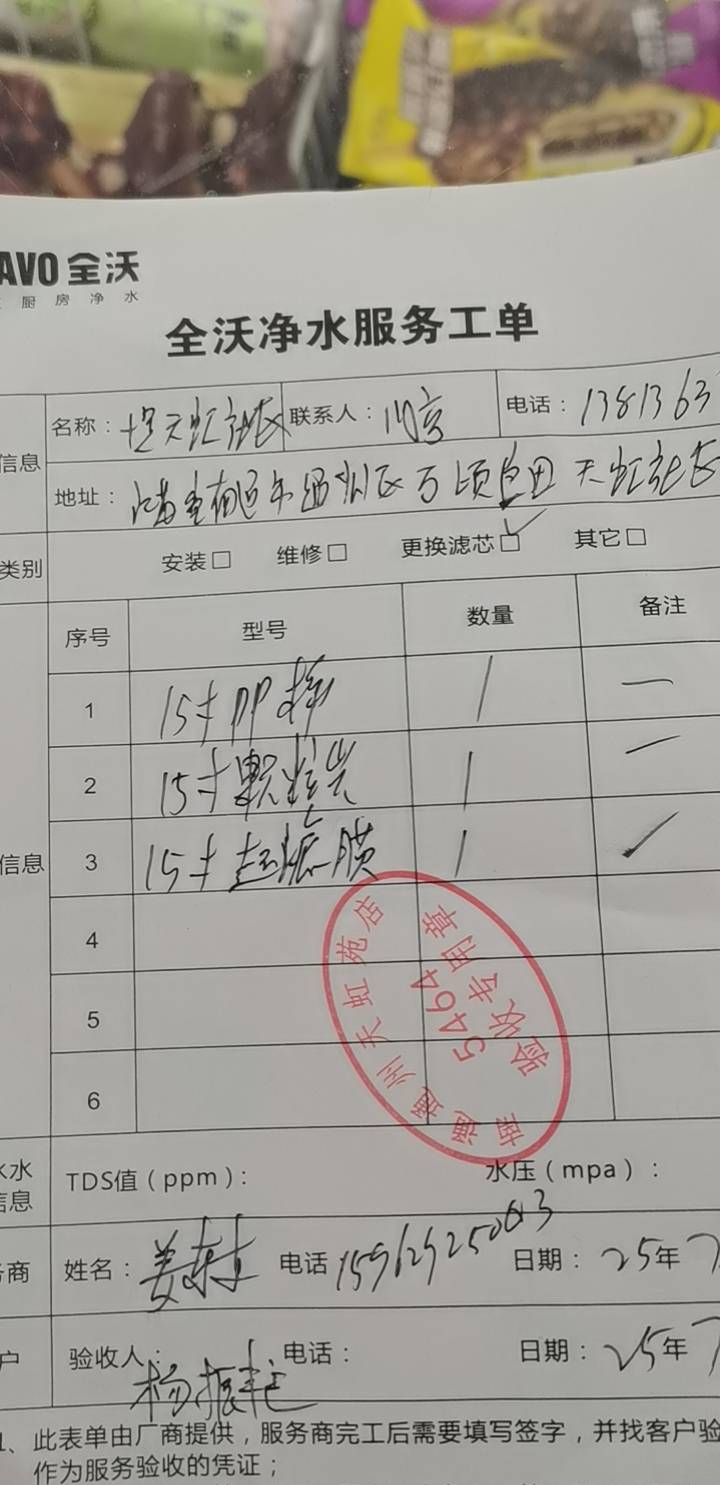 AVO 全沃
厨房净水
全沃净水服务工单
信息
名称： 联系人： 电话：1381363
地址： 万顷良田 天虹社区
类别
安装□ 维修□ 更换滤芯☑ 其它□
序号 型号 数量 备注
信息
1 15寸PP棉 1 —
2 15寸颗粒炭 1 —
3 15寸超滤膜 1
4
5
6
南通通州天虹苑店
5464
验收专用章
水
信息
TDS值（ppm）： 水压（mpa）：
务商
姓名：姜 电话 日期：25年7
户
验收人：杨振 电话： 日期：25年7
1、此表单由厂商提供，服务商完工后需要填写签字，并找客户验
作为服务验收的凭证；